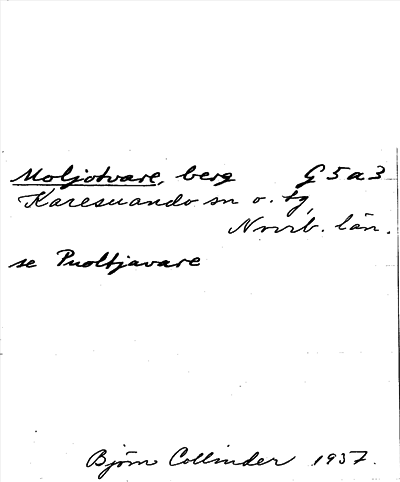 Moljotvare, berg G5a3
Karesuando sn o. tg,
Norrb. län.
se Puoltjavare
Björn Collinder 1937.